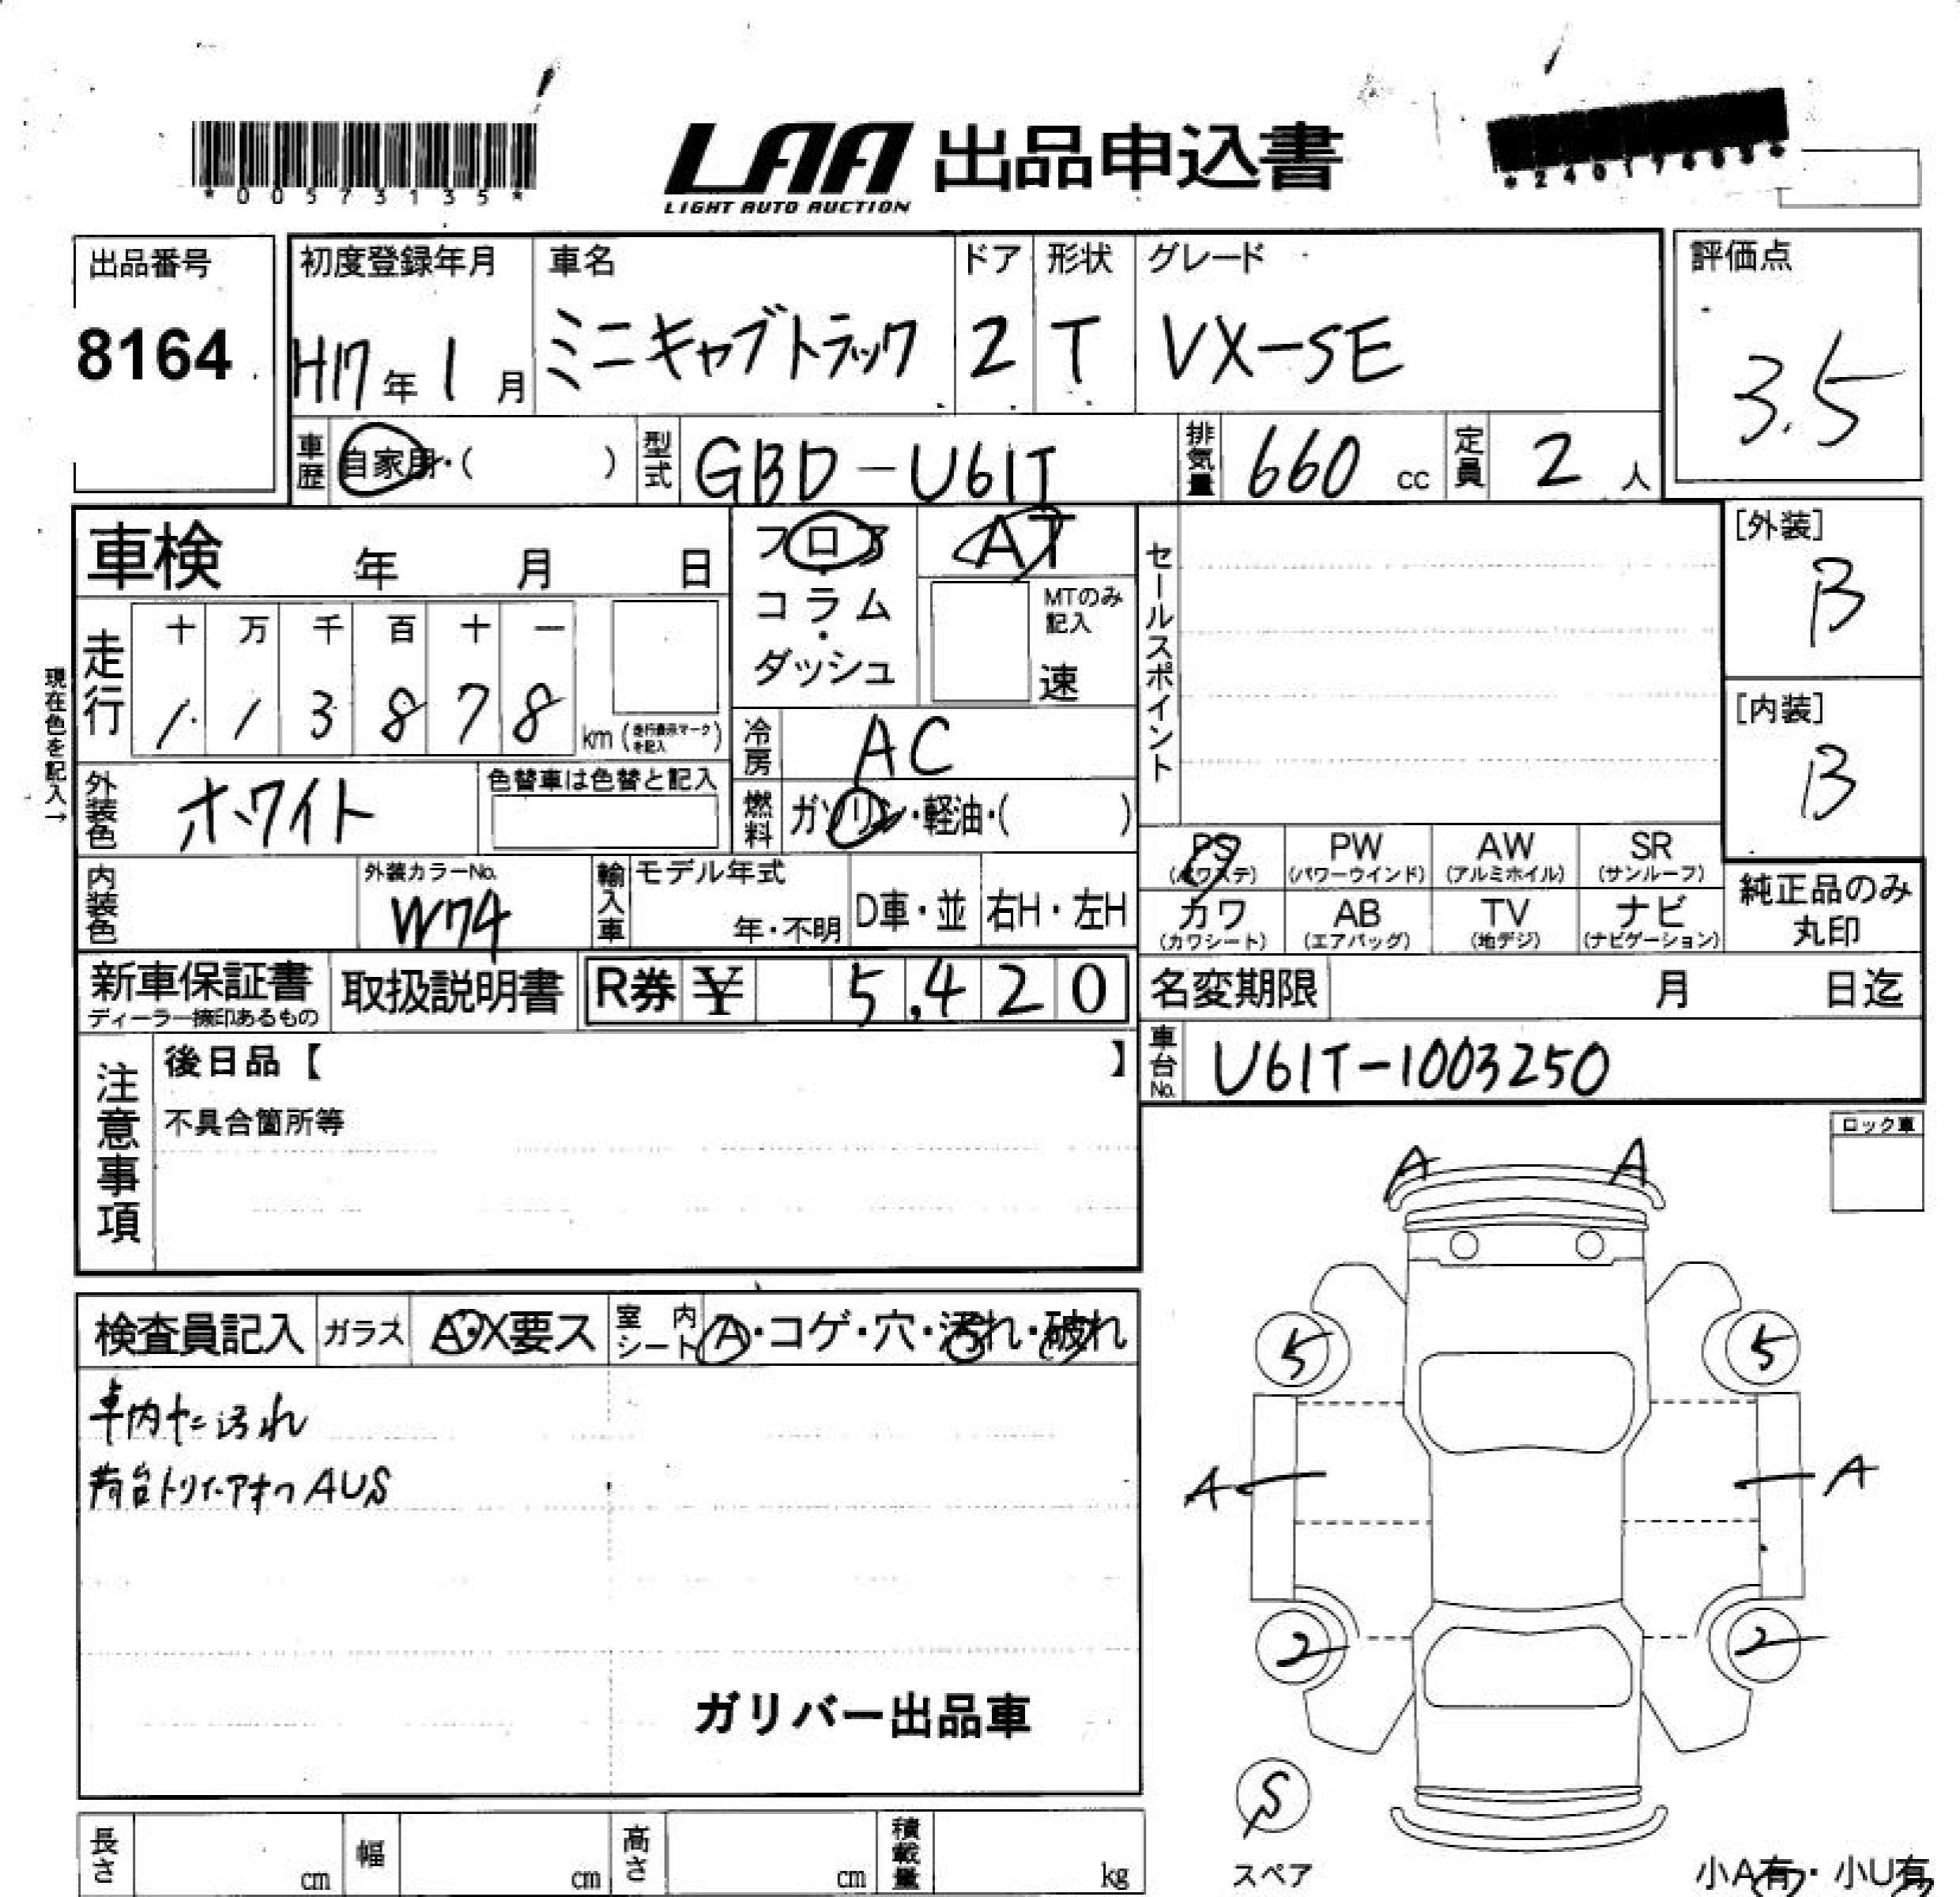 *00573135*
LAA 出品申込書
LIGHT AUTO AUCTION
*24017603*
出品番号
8164
初度登録年月
H17年1月
車名
ミニキャブトラック
ドア
2
形状
T
グレード
VX-SE
評価点
3.5
車歴
自家用・( )
型式
GBD-U61T
排気量
660 cc
定員
2 人
車検 年 月 日
フロア・コラム・ダッシュ
AT
MTのみ記入
速
セールスポイント
[外装]
B
[内装]
B
現在色を記入→
走行
十 万 千 百 十 一
1 1 3 8 7 8
km (走行表示マークを記入)
冷房
AC
外装色
ホワイト
色替車は色替と記入
燃料
ガソリン・軽油・( )
PS PW AW SR
(パワステ) (パワーウインド) (アルミホイル) (サンルーフ)
カワ AB TV ナビ
(カワシート) (エアバッグ) (地デジ) (ナビゲーション)
純正品のみ
丸印
内装色
外装カラーNo.
W74
輸入車
モデル年式
年・不明
D車・並
右H・左H
新車保証書
ディーラー捺印あるもの
取扱説明書
R券 ¥ 5,420
名変期限 月 日迄
車台No.
U61T-1003250
注意事項
後日品【 】
不具合箇所等
ロック車
A A
検査員記入
ガラス
A・X要ス
室内シート
A・コゲ・穴・汚れ・破れ
車内キズ汚れ
荷台 AUS
5 5
A A
2 2
ガリバー出品車
S
スペア
長さ cm
幅 cm
高さ cm
積載量 kg
小A有・小U有